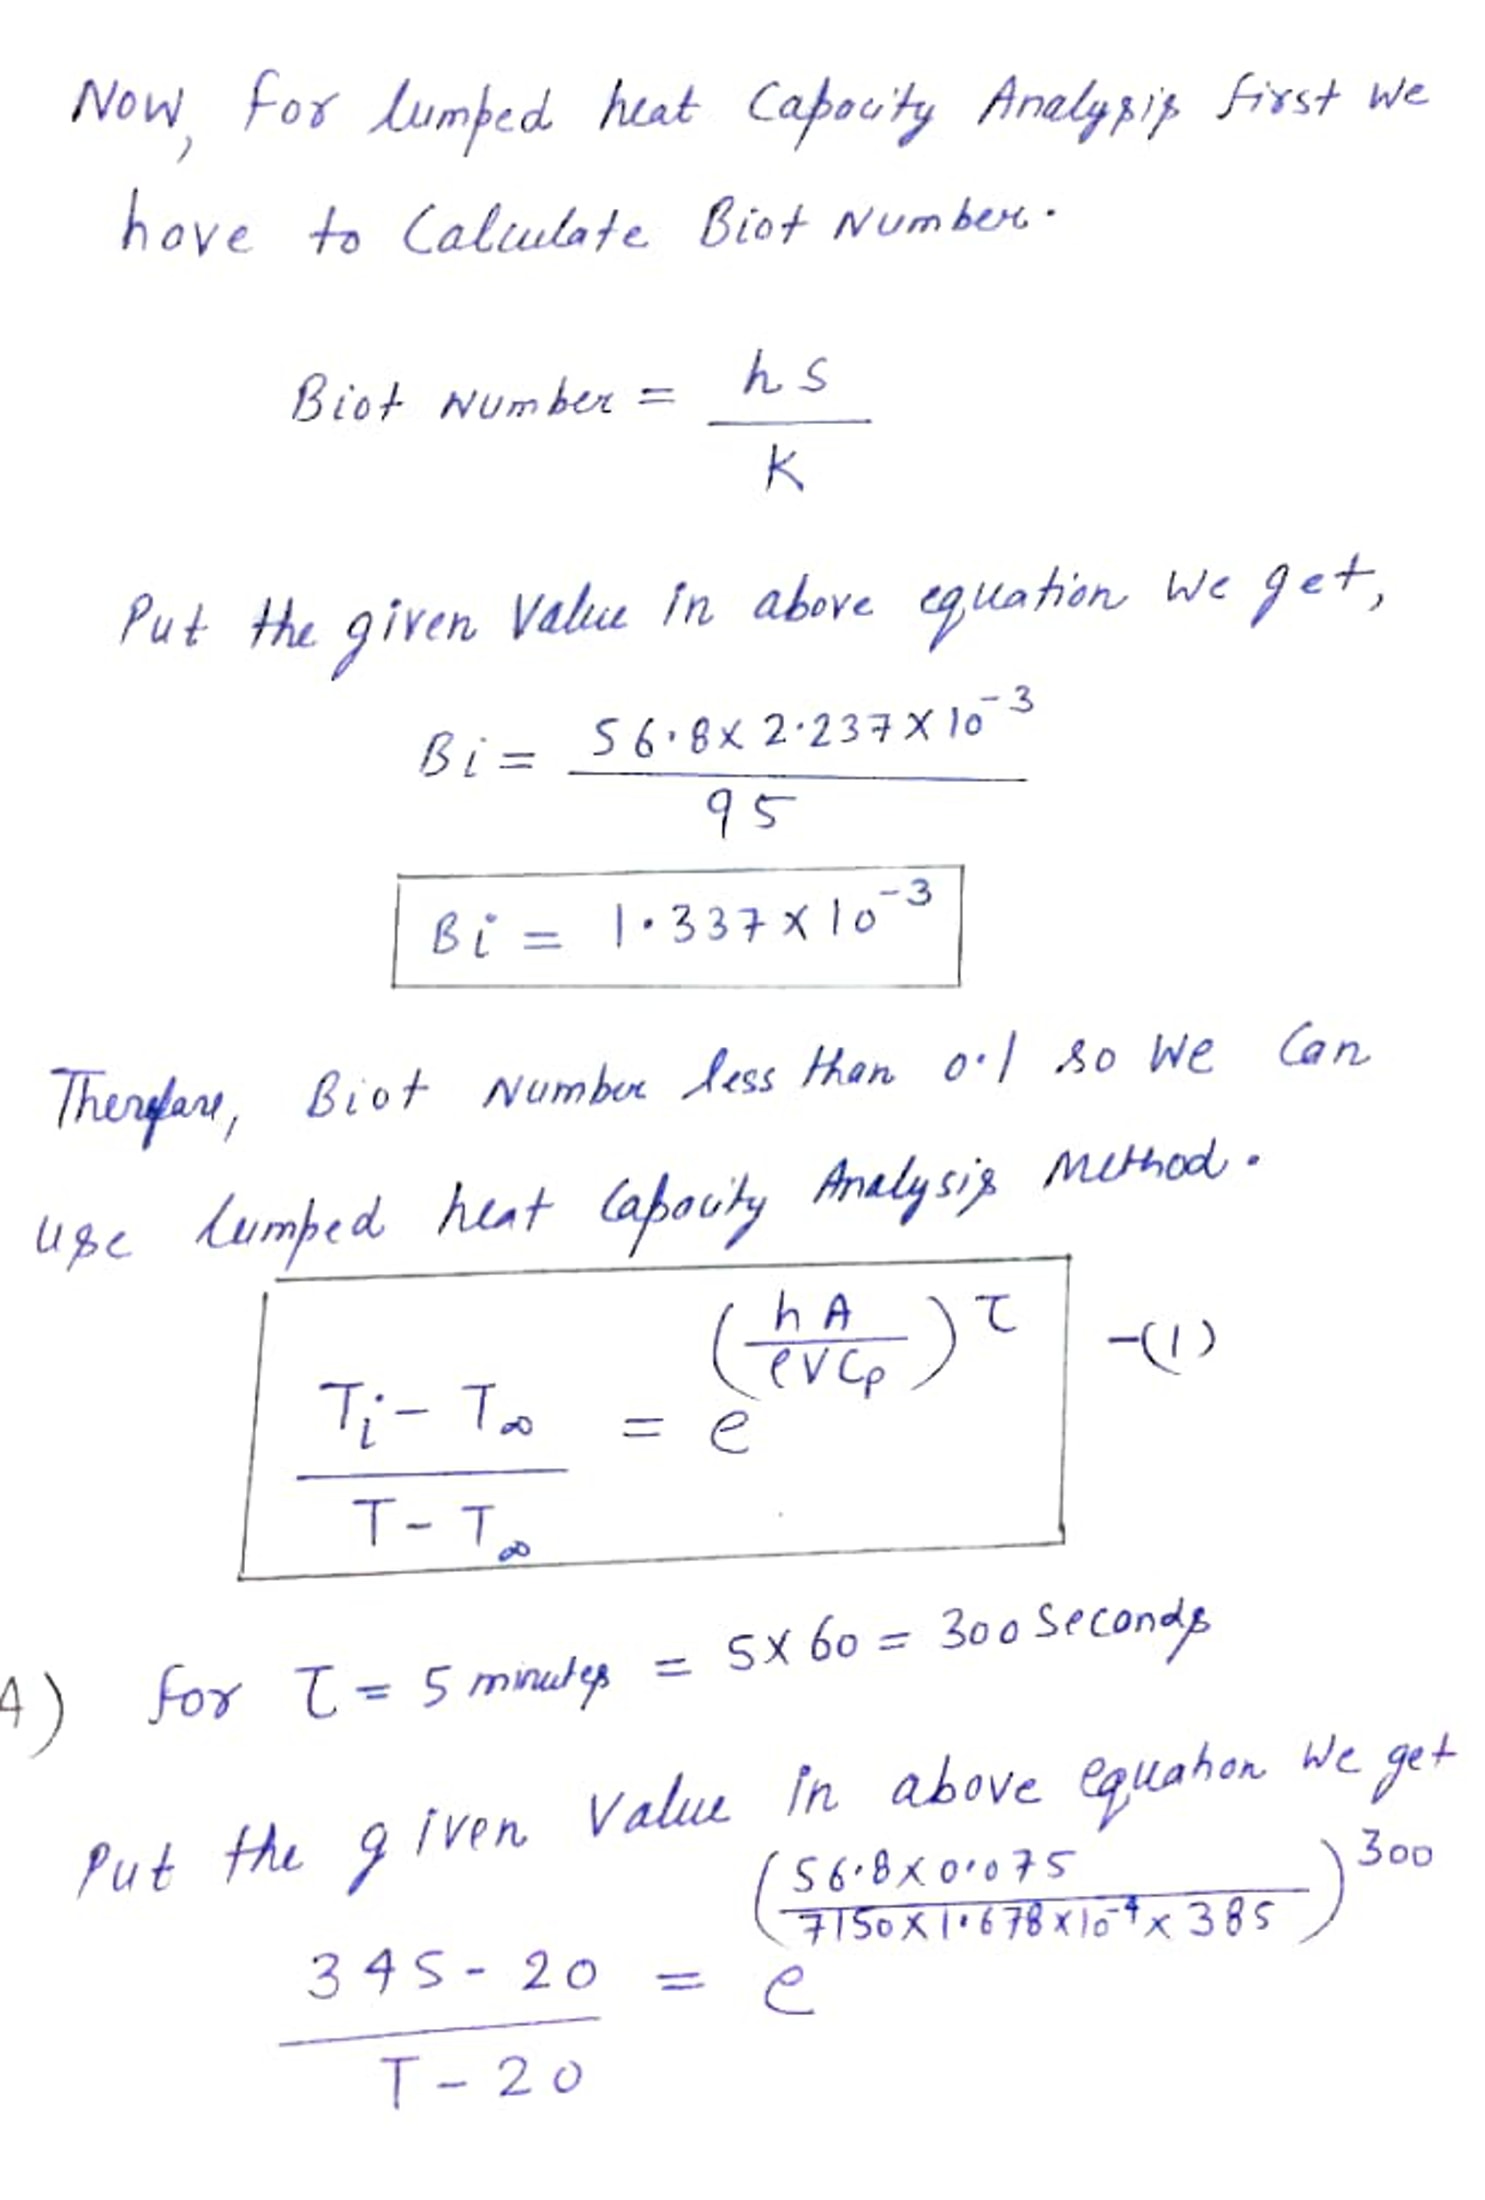 Now, for lumped heat Capacity Analysis first we
have to Calculate Biot Number.
Biot Number = hs / K
Put the given Value in above equation we get,
Bi = 56.8 × 2.237 × 10⁻³ / 95
Bi = 1.337 × 10⁻³
Therefore, Biot Number less than 0.1 so we Can
use lumped heat Capacity Analysis Method.
(Ti - T∞) / (T - T∞) = e^(hA / ρVCp)τ -(1)
A) for τ = 5 minutes = 5×60 = 300 Seconds
Put the given Value in above equation we get
(345 - 20) / (T - 20) = e^(56.8 × 0.075 / 7150 × 1.678 × 10⁻⁴ × 385)300